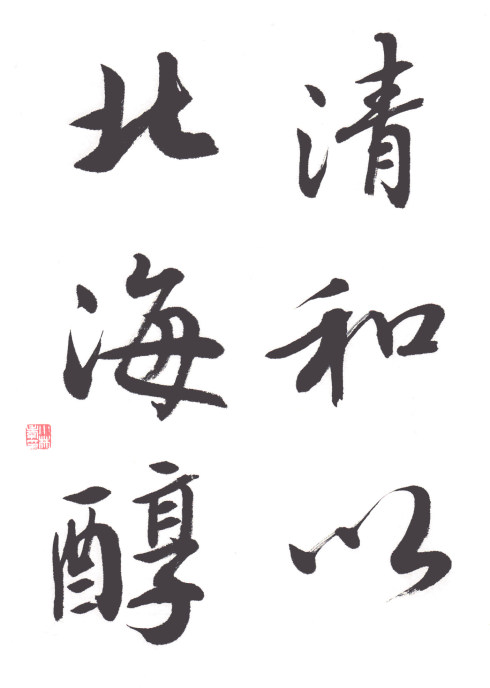 清和以
北海醇